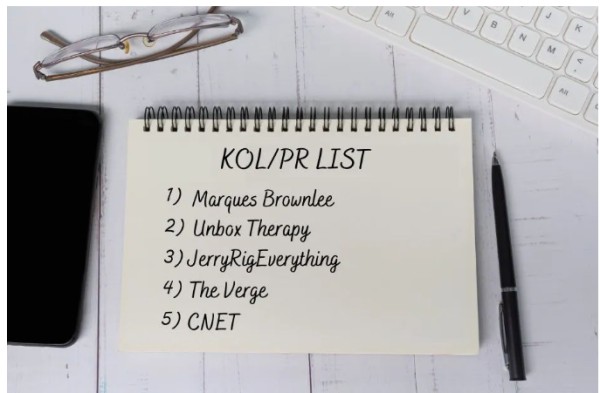 KOL/PR LIST
1) Marques Brownlee
2) Unbox Therapy
3) JerryRigEverything
4) The Verge
5) CNET
Alt
V
B
N
M
J
K
<
Alt